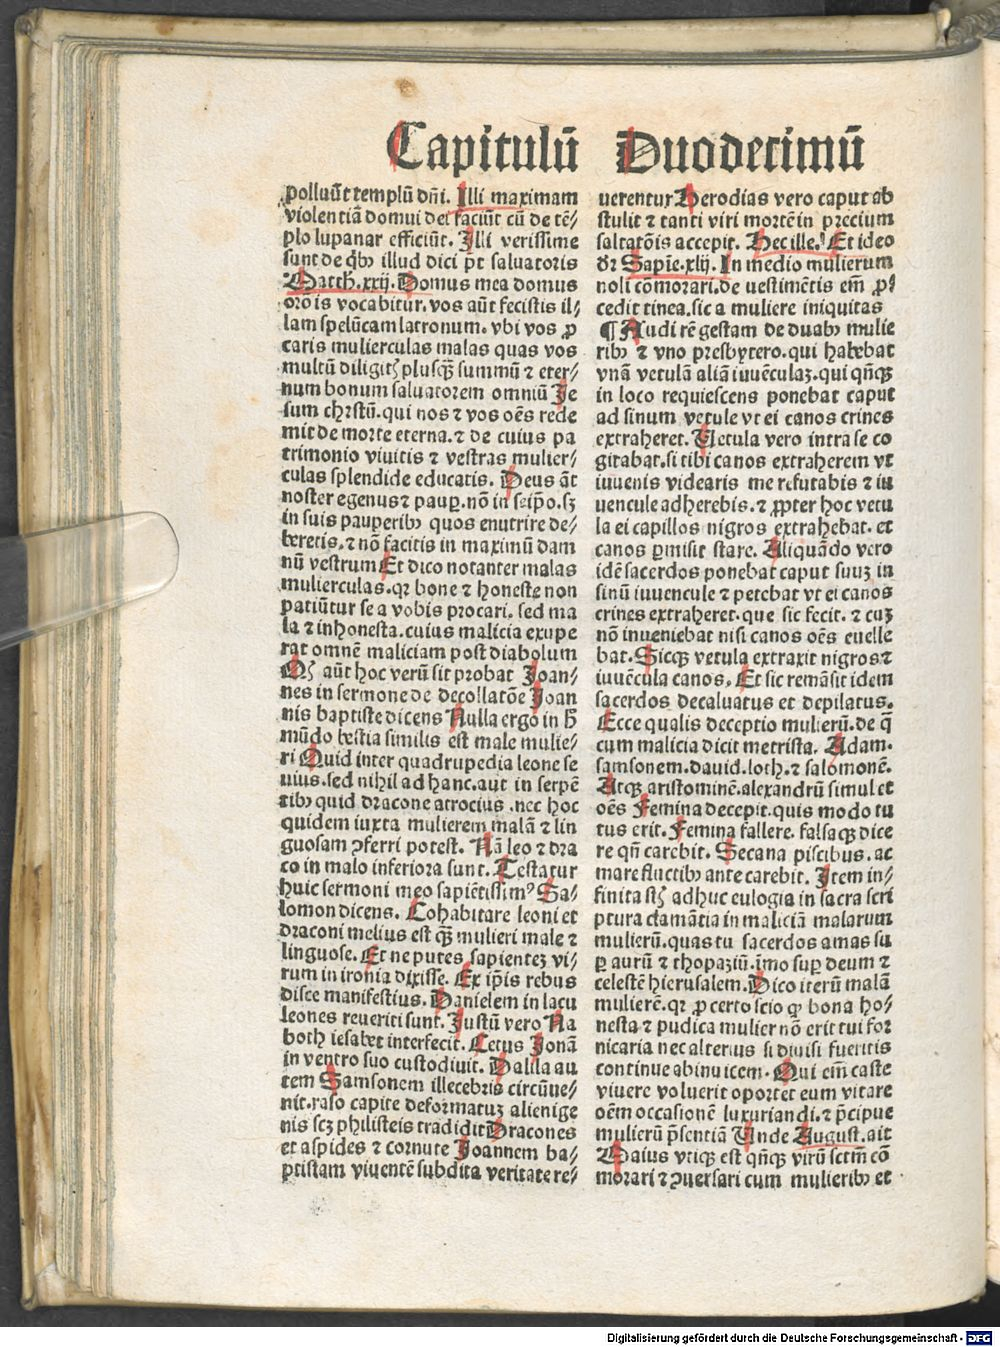 Capitulū Duodecimū
polluūt templū dn̄i. Illi maximam
violentiā domui dei faciūt cū de tē⸗
plo lupanar efficiūt. Illi verissime
sunt de qͥbꝰ illud dici pt̄ saluatoris
Matth. xxij. Domus mea domus
orōis vocabitur. vos aūt fecistis il⸗
lam spelūcam latronum. vbi vos ꝓ
caris mulierculas malas quas vos
multū diligitꝭ plusqȝ summū ⁊ eter⸗
num bonum saluatorem omniū Je
sum chrstū. qui nos ⁊ vos oēs rede
mit de morte eterna. ⁊ de cuius pa
trimonio viuitis ⁊ vestras mulier⸗
culas splendide educatis. Deus āt
noster egenus ⁊ pauꝑ. nō in seip̄o. sȝ
in suis pauperibꝰ quos enutrire de⸗
beretis. ⁊ nō facitis in maximū dam
nū vestrum Et dico notanter malas
mulierculas. qꝛ bone ⁊ honeste non
patiūtur se a vobis procari. sed ma
la ⁊ inhonesta. cuius malicia exupe
rat omnē maliciam post diabolum
Qꝭ aūt hoc verū sit probat Joan⸗
nes in sermone de decollatōe Joan
nis baptiste dicens Nulla ergo in h̄
mūdo bestia similis est male mulie⸗
ri Quid inter quadrupedia leone se
uius. sed nihil ad hanc. aut in serpē
tibꝰ quid dracone atrocius. nec hoc
quidem iuxta mulierem malā ⁊ lin
guosam ꝯferri potest. Nā leo ⁊ dra
co in malo inferiora sunt. Testatur
huic sermoni meo sapiētissimꝰ Sa⸗
lomon dicens. Cohabitare leoni et
draconi melius est qȝ mulieri male ⁊
linguose. Et ne putes sapientez vi⸗
rum in ironia dixisse. Ex ip̄is rebus
disce manifestius. Danielem in lacu
leones reueriti sunt. Justū vero Na
both iesabet interfecit. Cetus Jonā
in ventro suo custodiuit. Dalila au
tem Samsonem illecebris circūue⸗
nit. raso capite deformatuz alienige
nis scȝ philisteis tradidit Dracones
et aspides ⁊ cornute Joannem ba⸗
ptistam viuentē subdita veritate re⸗
uerentur Herodias vero caput ab
stulit ⁊ tanti viri mortē in precium
saltatōis accepit. Hec ille. Et ideo
dr̄ Sapiē. xlij. In medio mulierum
noli cōmorari. de uestimētis em̄ ꝓ⸗
cedit tinea. sic a muliere iniquitas
¶ Audi rē gestam de duabꝰ mulie
ribꝰ ⁊ vno presbytero. qui habebat
vnā vetulā aliā iuuēculaz. qui qn̄qȝ
in loco requiescens ponebat caput
ad sinum vetule vt ei canos crines
extraheret. Vetula vero intra se co
gitabat. si tibi canos extraherem vt
iuuenis videaris me refutabis ⁊ iu
uencule adherebis. ⁊ ꝓpter hoc vetu
la ei capillos nigros extrahebat. et
canos ꝑmisit stare. Aliquādo vero
idē sacerdos ponebat caput suuȝ in
sinū iuuencule ⁊ petebat vt ei canos
crines extraheret. que sic fecit. ⁊ cuȝ
nō inueniebat nisi canos oēs euelle
bat. Sicqȝ vetula extraxit nigros ⁊
iuuēcula canos. Et sic remāsit idem
sacerdos decaluatus et depilatus.
Ecce qualis deceptio mulierū. de q̄
cum malicia dicit metrista. Adam.
samsonem. dauid. loth. ⁊ salomonē.
Atqȝ aristominē. alexandrū simul et
oēs Femina decepit. quis modo tu
tus erit. Femina fallere. falsaqȝ dice
re qn̄ carebit. Secana piscibus. ac
mare fluctibꝰ ante carebit. Item in⸗
finita sꝭ adhuc eulogia in sacra scri
ptura clamātia in maliciā malarum
mulierū. quas tu sacerdos amas su
ꝑ aurū ⁊ thopaziū. īmo suꝑ deum ⁊
celestē hierusalem. Dico iterū malā
mulierē. qꝛ ꝓ certo scio qꝫ bona ho⸗
nesta ⁊ pudica mulier nō erit tui for
nicaria nec alterius si diuisi fueritis
continue abinuicem. Qui em̄ caste
viuere voluerit oportet eum vitare
oēm occasionē luxuriandi. ⁊ p̄cipue
mulierū p̄sentiā Unde August. ait
Maius vtiqȝ est qn̄qȝ virū sctm̄ cō
morari ⁊ ꝯuersari cum mulieribꝰ et
Digitalisierung gefördert durch die Deutsche Forschungsgemeinschaft - DFG